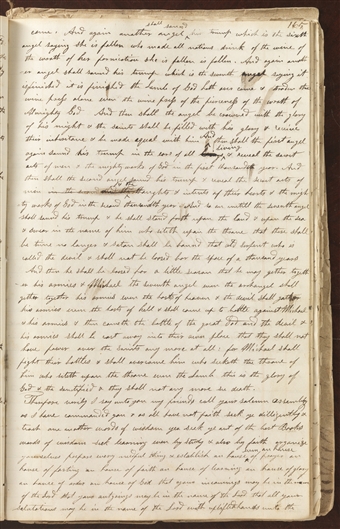 165
shall sound
come. And again another angel, his trump which is the sixth
angel saying she is fallen who made all nations drink of the wine of
the wrath of her fornication she is fallen is fallen. And again anoth
er angel shall sound his trump which is the seventh angel saying it
is finished it is finished the Lamb of God hath over come & trodden the
wine press alone even the wine press of the fierceness of the wrath of
Almighty God And then shall the angels be crowned with the glory
of his might & the saints shall be filled with his glory & receive
their inheritance & be made equal with him And then shall the first angel
again sound his trump in the ears of all living & reveal the secret
acts of men & the mighty works of God in the first thousandth year. And
then shall the second angel sound his trump & reveal the secret acts of
men & the thoughts & intents of their hearts & the migh
ty works of God in the second thousandth year & so on until the seventh angel
shall sound his trump & he shall stand forth upon the land & upon the sea
& swear in the name of him who siteth upon the throne that there shall
be time no longer & satan shall be bound that old serpent who is
called the devil & shall not be loosed for the space of a thousand years
And then he shall be loosed for a little season that he may gather togeth
er his armies & Michael the seventh angel even the archangel shall
gather together his armies even the hosts of heaven & the devil shall gather
his armies even the hosts of hell & shall come up to battle against Michael
& his armies & then cometh the battle of the great God and the devil &
his armies shall be cast away into their own place that they shall not
have power over the saints any more at all for Michael shall
fight their battles & shall overcome him who seeketh the throne of
him who siteth upon the throne even the Lamb. this is the glory of
God & the sanctified & they shall not any more see death.
Therefore verily I say unto you my friends call your solemn assembly
as I have commanded you & as all have not faith seek ye dilligently &
teach one another words of wisdom yea seek ye out of the best Books
words of wisdom seek learning even by study & also by faith organize
yourselves prepare every needful thing & establish an house, even an house of prayer an
house of fasting an house of faith an house of learning an house of glory
an house of order an house of God that your incomings may be in the name
of the Lord that your outgoings may be in the name of the Lord that all your
salutations may be in the name of the Lord with uplifted hands unto the